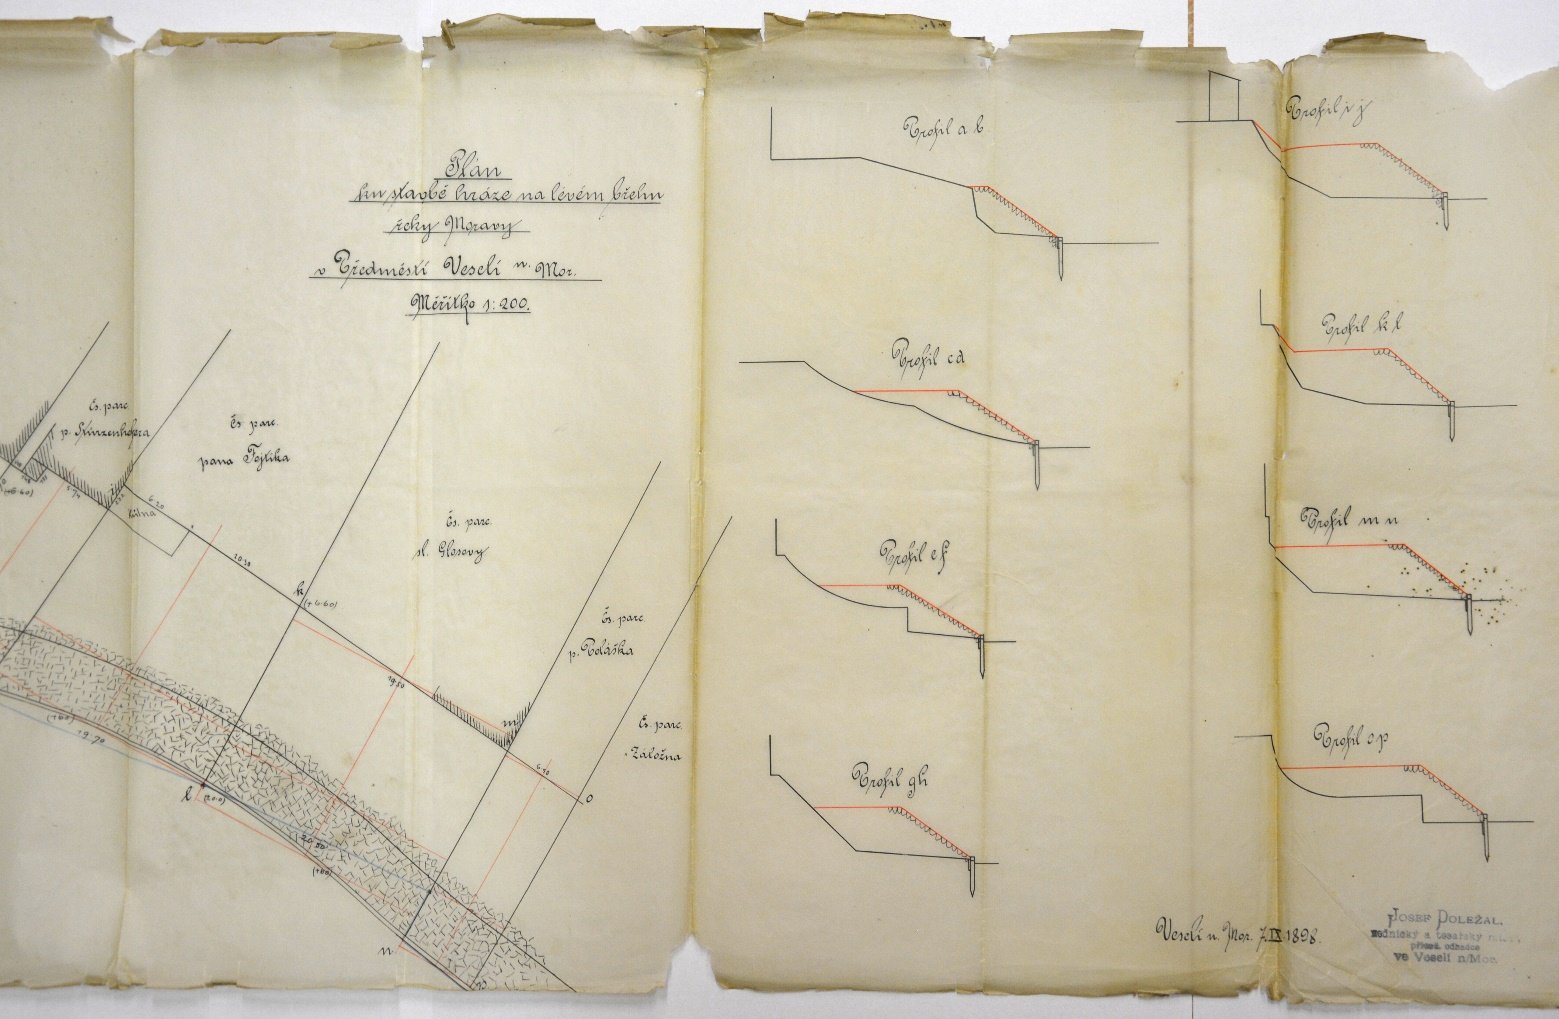 Plán
ku stavbě hráze na lévém břehu
řeky Moravy
v Předměstí Veselí n. Mor.
Měřítko 1:200.
Čs. parc.
p. Stürzenhofera
Čs. parc.
pana Fojtíka
Čs. parc.
sl. Glosovy
Čs. parc.
p. Poláška
Čs. parc.
Záložna
Kůlna
6·20
20·30
k
(+6·60)
19·50
m
6·70
o
(+60)
19·70
l
(200)
20·50
(+60)
n
Profil a b
Profil c d
Profil e f
Profil g h
Profil i j
Profil k l
Profil m n
Profil o p
Veselí n. Mor. 7.IX.1898.
JOSEF DOLEŽAL.
zednický a tesařský
přísež. odhadce
ve Veselí n/Mor.